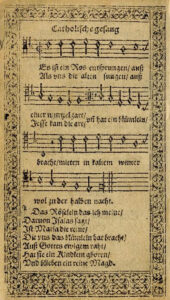 Catholische gesang
Es ist ein Ros entsprungen/ auß
Als uns die alten sungen/ auß
einer wurtzel zart/ uñ hat ein blümlein/
Jesse kam die art/
bracht/ mitten in kaltem winter
wol zu der halben nacht.
Das Röselein das ich meine/
Darvon Isaias sagt/
Ist Maria die reine/
Die uns das blümlein hat bracht/
Auß Gottes ewigem raht/
Hat sie ein Kindlein geboren/
Und blieben ein reine Magd.